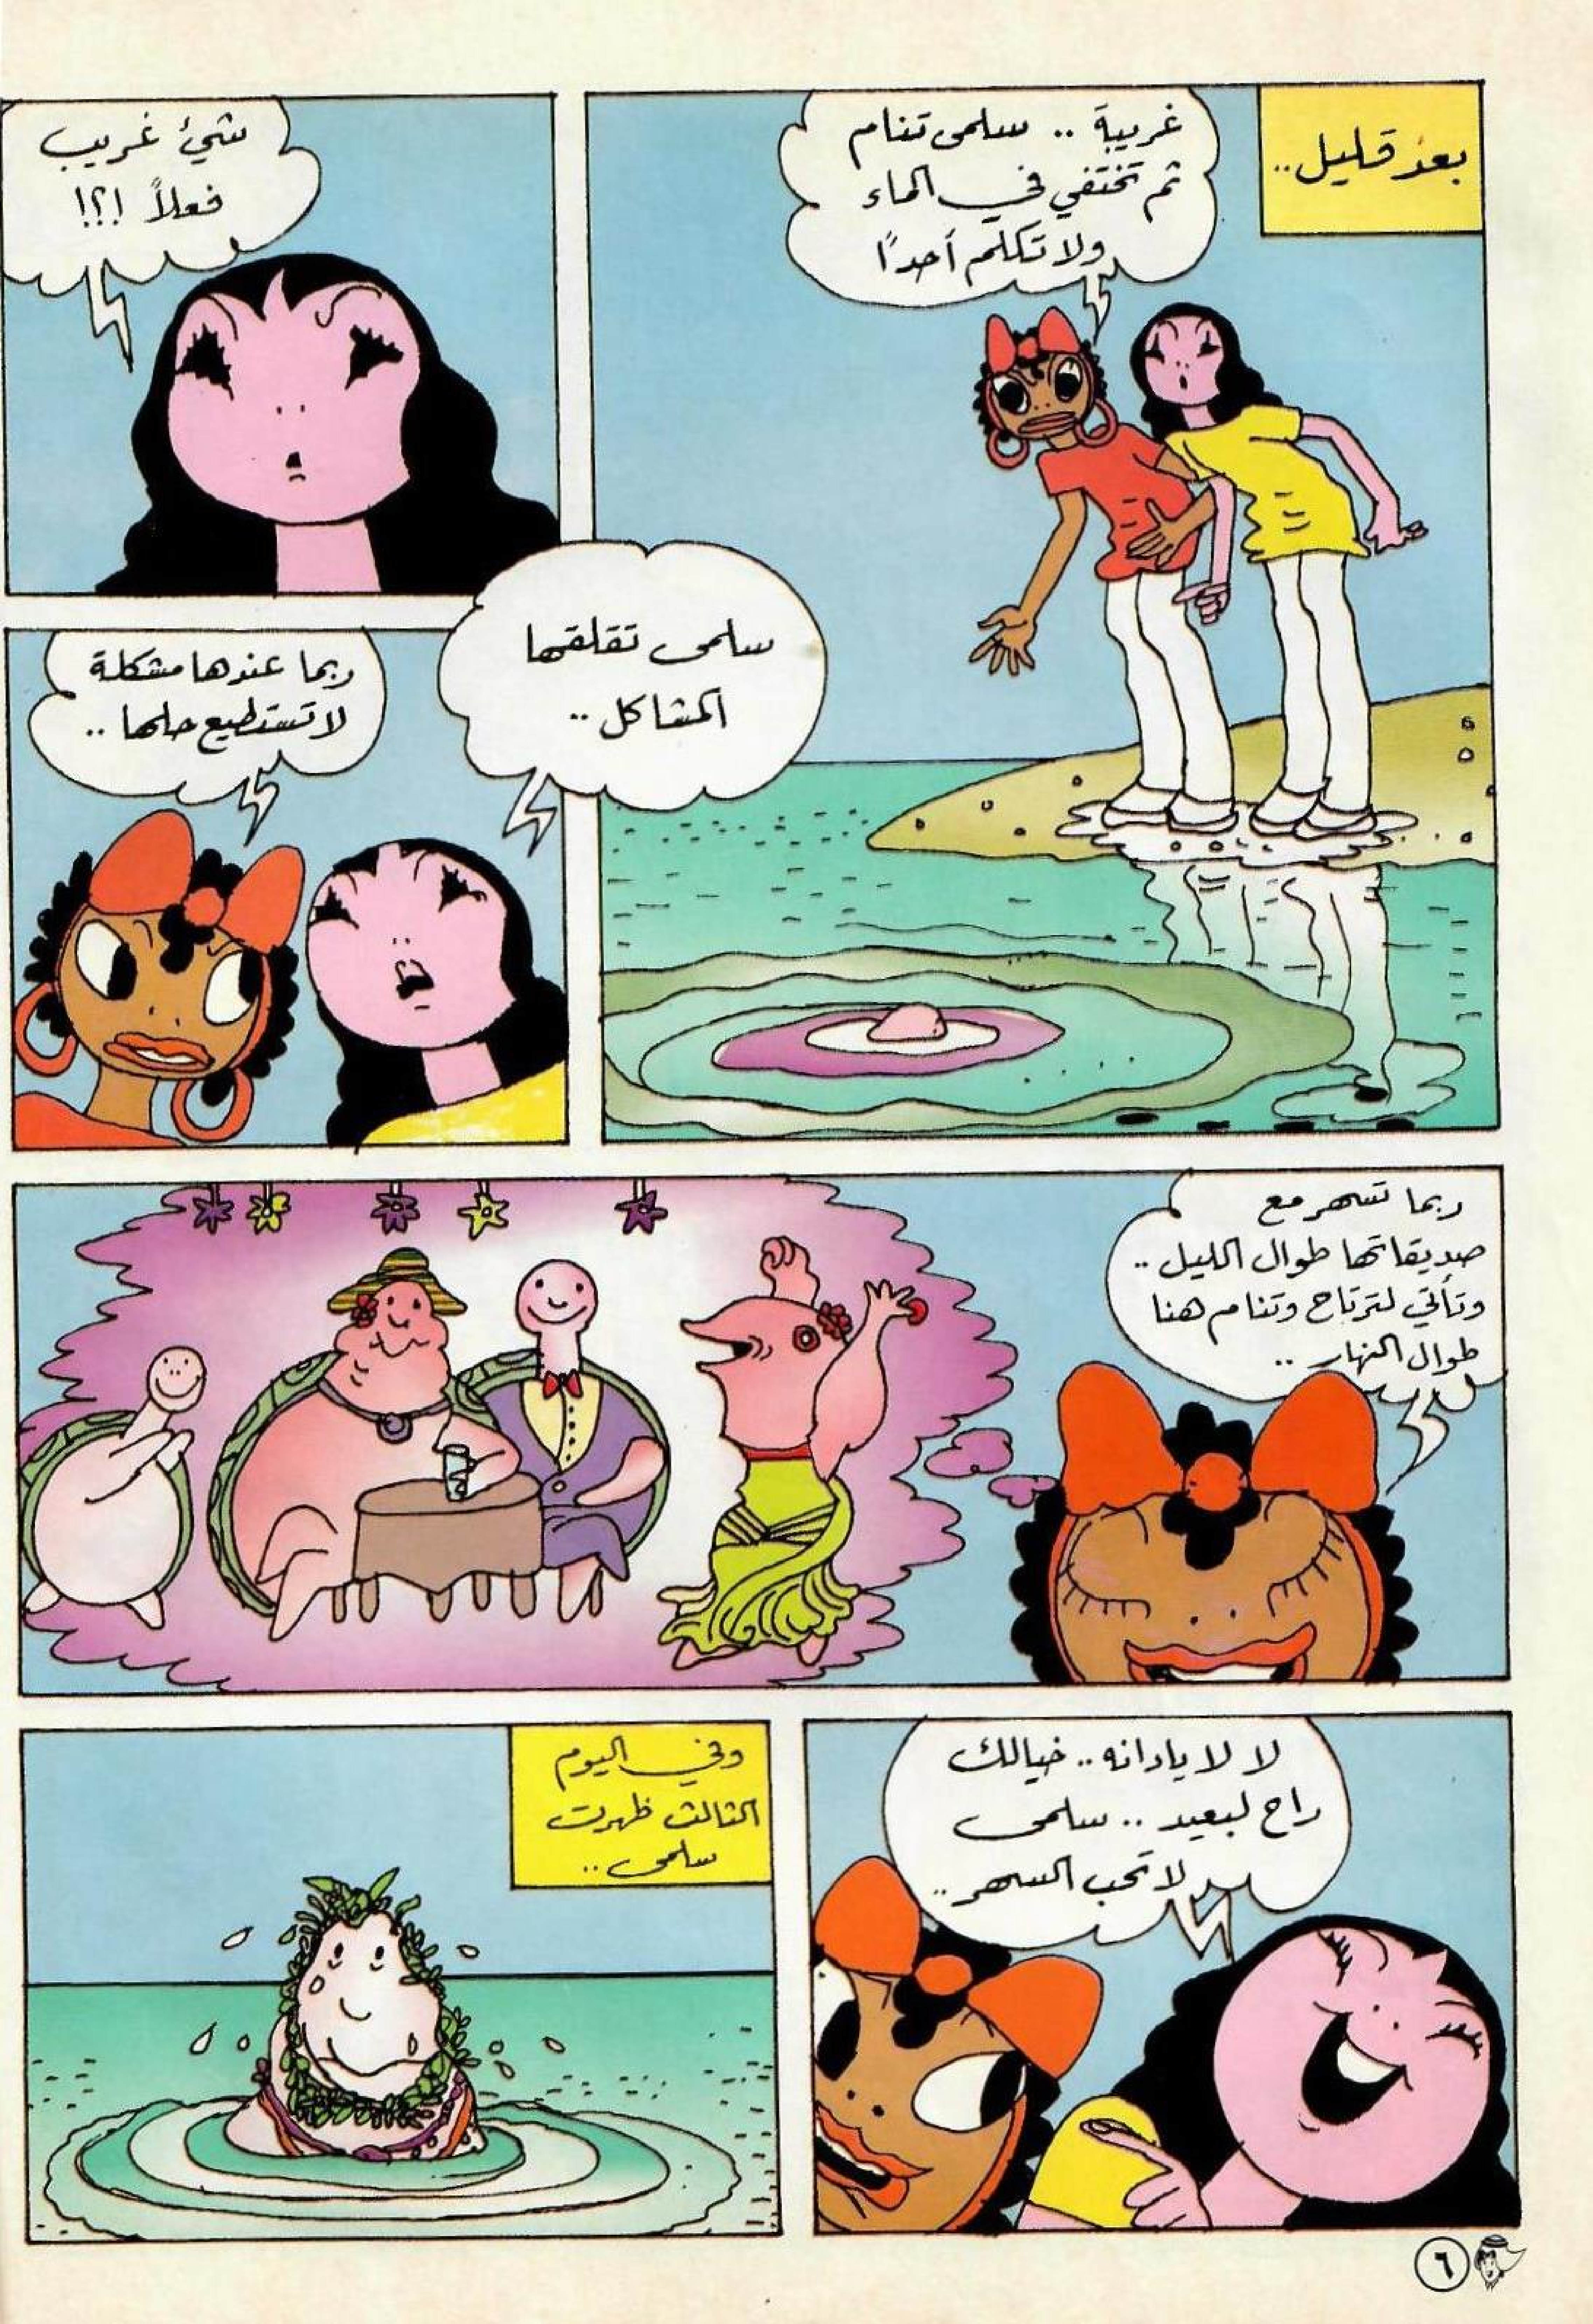 بعد قليل..
غريبة .. سلمى تنام
ثم تختفي في الماء
ولا تكلم أحدًا
شيئ غريب
فعلاً !؟!
سلمى تقلقها
المشاكل ..
ربما عندها مشكلة
لا تستطيع حلها ..
ربما تسهر مع
صديقاتها طوال الليل ..
وتأتي لترتاح وتنام هنا
طوال النهار ..
لا لا يا دانه .. خيالك
راح لبعيد .. سلمى
لا تحب السهر ..
وفي اليوم
الثالث ظهرت
سلمى ..
٦